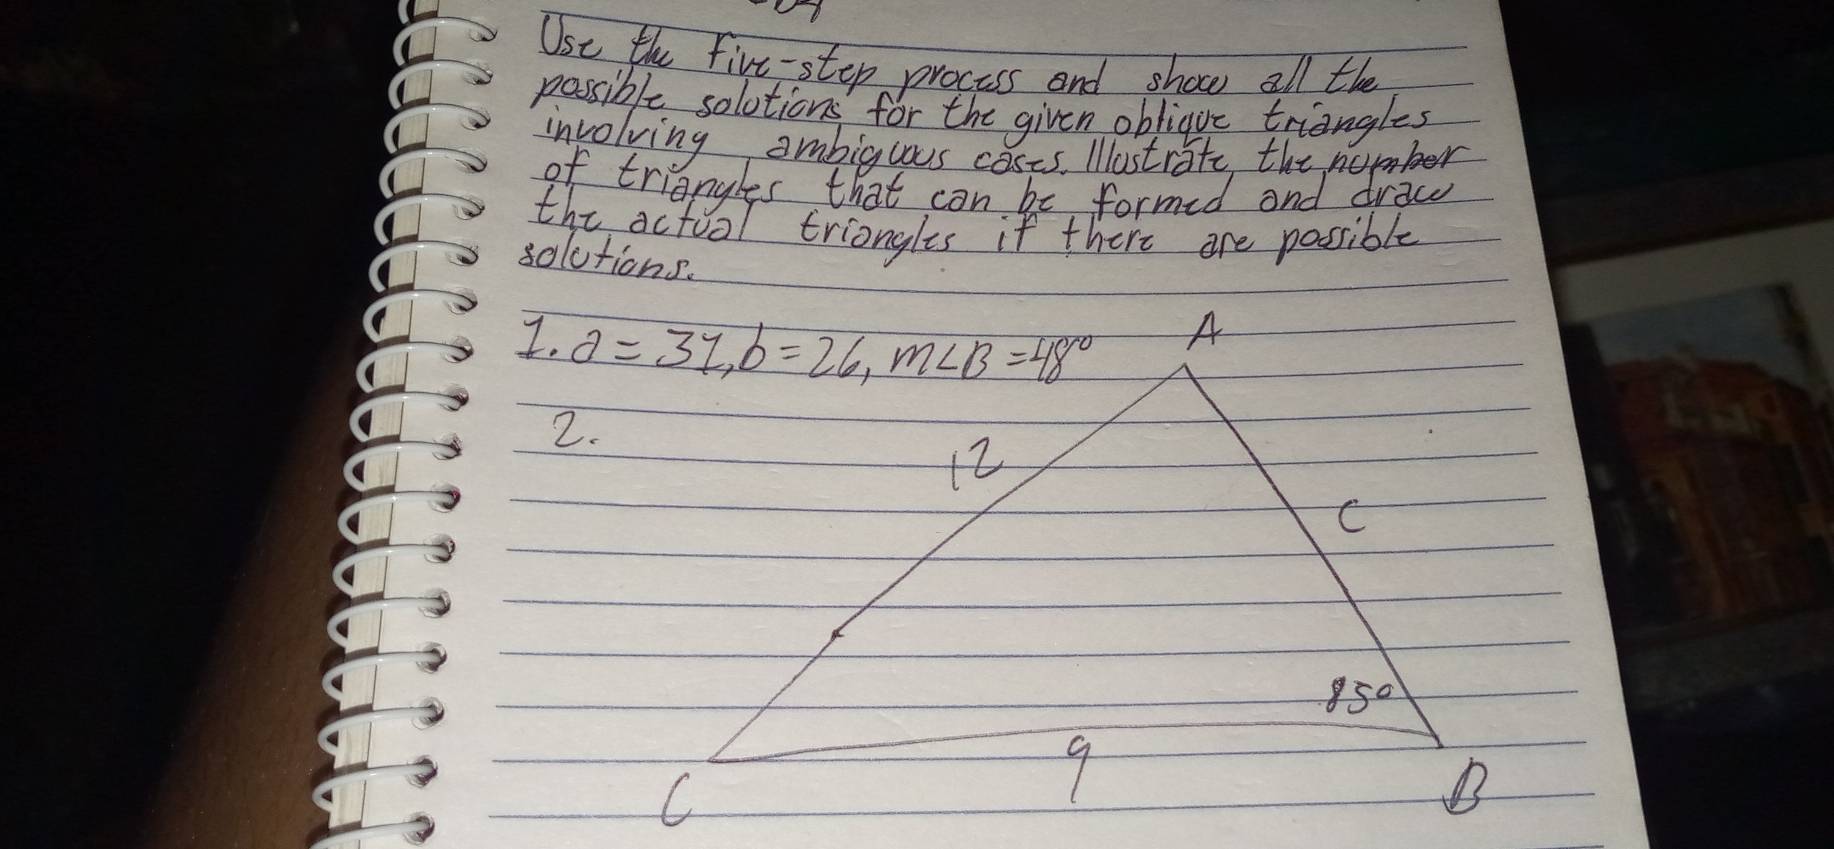 Use the five-step process and show all the
possible solutions for the given oblique triangles
involving ambiguous cases. Illustrate the number
of triangles that can be formed and draw
the actual triangles if there are possible
solutions.
1. a = 31, b = 26, m∠B = 48°
A
2.
12
C
85°
9
C
B